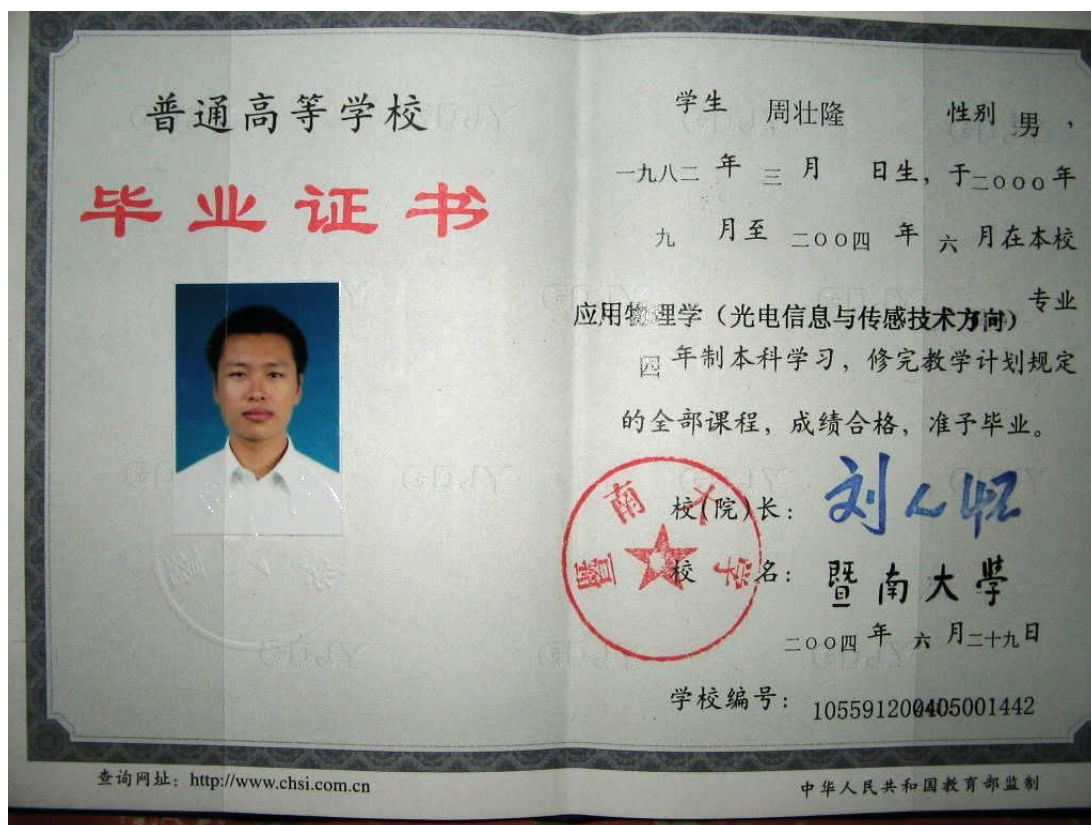 普通高等学校
毕业证书
学生 周壮隆 性别 男，
一九八二 年 三 月 日生，于二〇〇〇年
九 月至 二〇〇四 年 六 月在本校
应用物理学（光电信息与传感技术方向）专业
四 年制本科学习，修完教学计划规定
的全部课程，成绩合格，准予毕业。
校(院)长：刘人怀
校 名：暨南大學
暨南大学
二〇〇四 年 六 月二十九日
学校编号：105591200405001442
查询网址：http://www.chsi.com.cn
中华人民共和国教育部监制